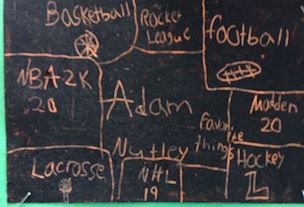 Basketball
Rocket
League
football
NBA2K
20
Adam
Madden
20
favorite
things
Nutley
Hockey
Lacrosse
NHL
19